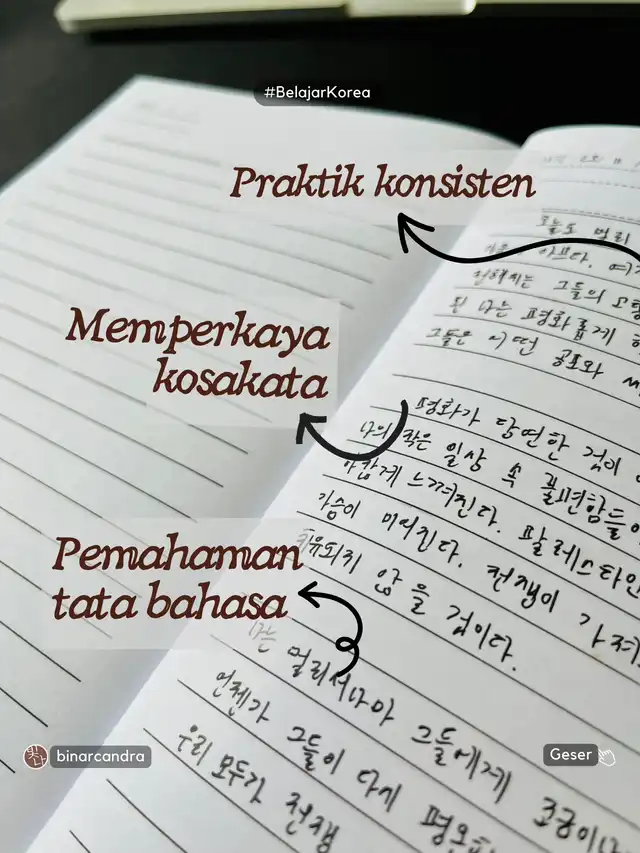 #BelajarKorea
Praktik konsisten
오늘도 멀리
아프다.
전해지는 그들의
된 나는 평화롭게
그들은 어떤 공포와
Memperkaya
kosakata
평화가 당연한 것이
나의 작은 일상 속 불편함들이
느껴진다. 팔레스타인
가슴이 미어진다. 전쟁이 가져
치유되지 않을 것이다.
Pemahaman
tata bahasa
나는 멀리서나마 그들에게 조금이나
언젠가 그들이 다시 평온
우리 모두가 전쟁
binarcandra
Geser